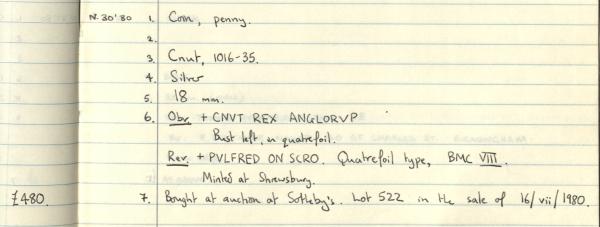 N.30'80 1. Coin, penny.
2.
3. Cnut, 1016-35.
4. Silver
5. 18 mm.
6. Obv. + CNVT REX ANGLORVP
Bust left, in quatrefoil.
Rev. + PVLFRED ON SCRO. Quatrefoil type, BMC VIII.
Minted at Shrewsbury.
£480. 7. Bought at auction at Sotheby's. Lot 522 in the sale of 16/vii/1980.